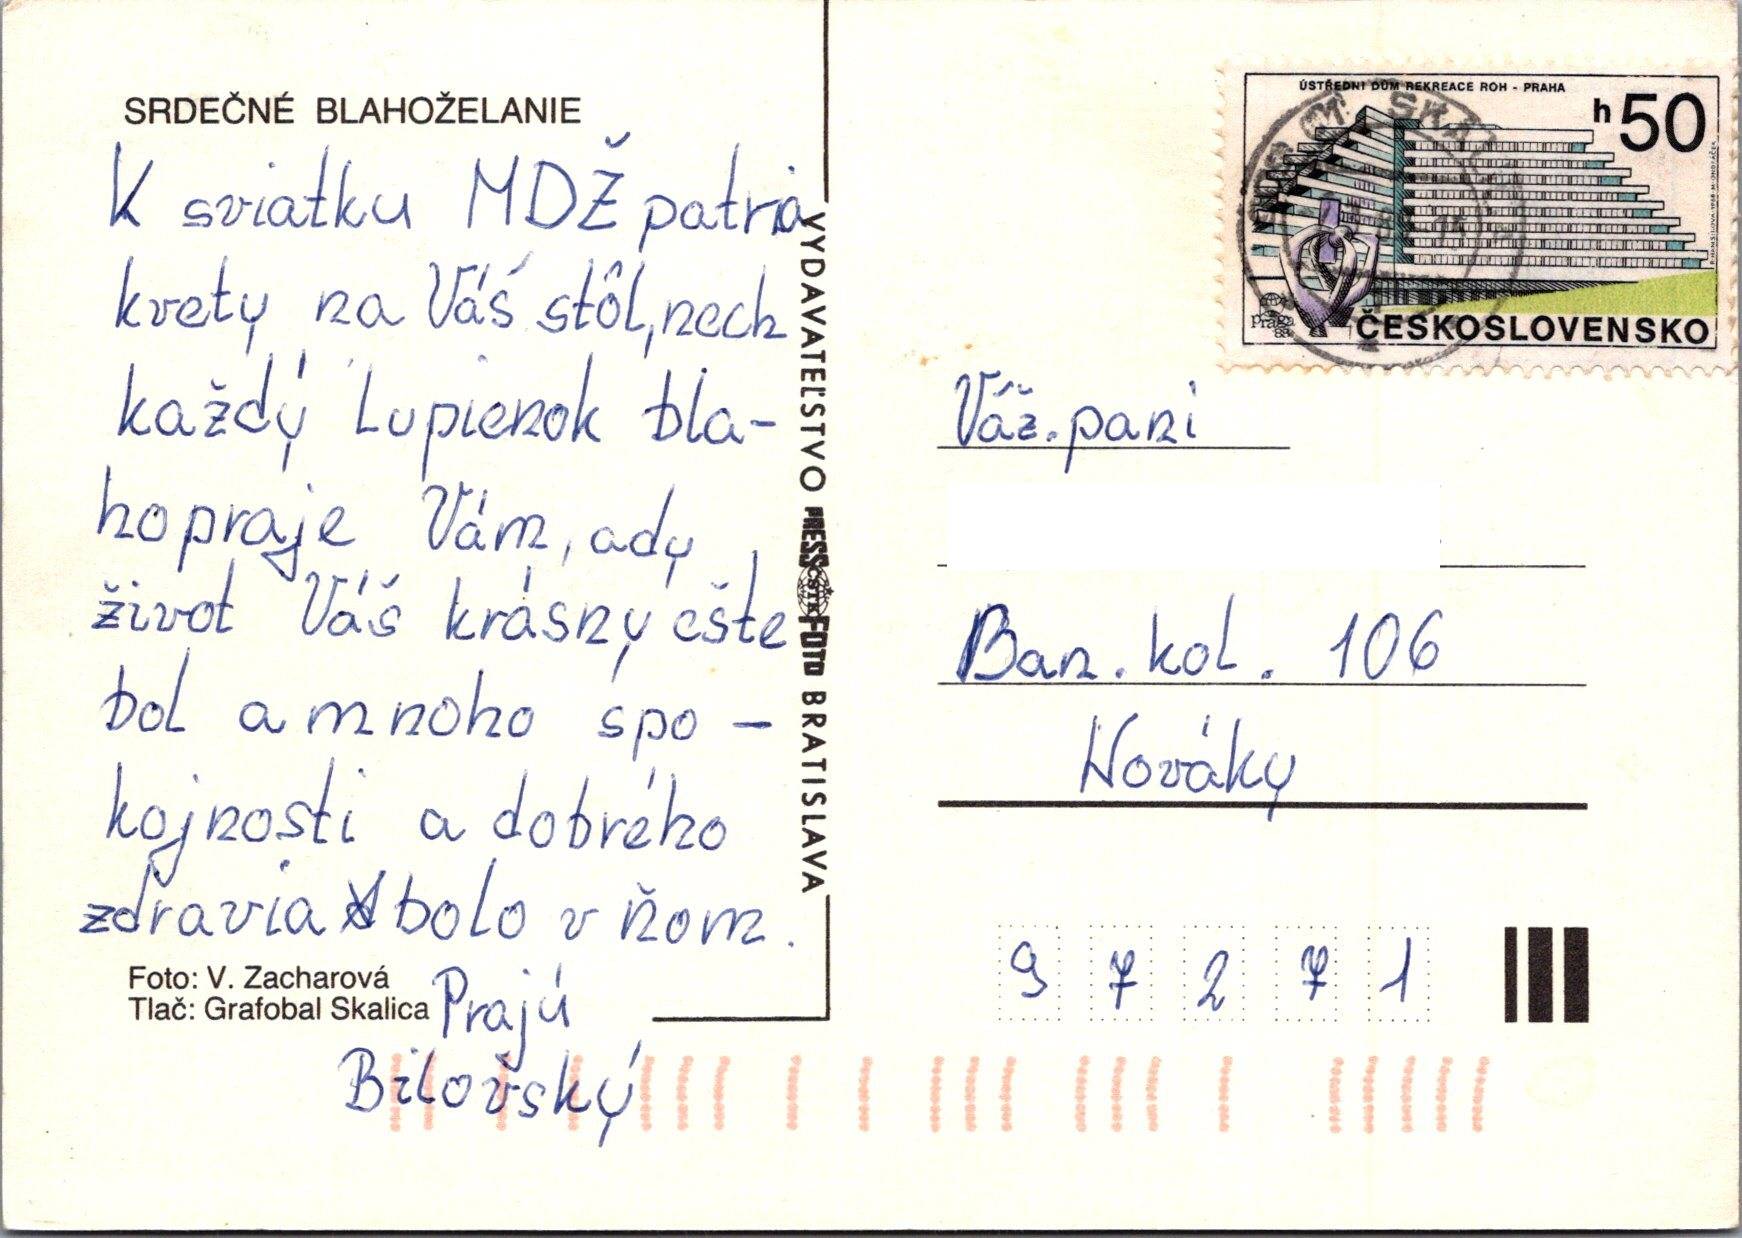 SRDEČNÉ BLAHOŽELANIE
K sviatku MDŽ patria
kvety na Váš stôl, nech
každý Lupienok bla-
hopraje Vám, ady
život Váš krásny ešte
bol a mnoho spo-
kojnosti a dobrého
zdravia bolo v ňom.
Foto: V. Zacharová
Tlač: Grafobal Skalica
Prajú
Bilovšký
VYDAVATEĽSTVO PRESSFOTO BRATISLAVA
ČSTK
ÚSTŘEDNÍ DŮM REKREACE ROH - PRAHA
h 50
praga
88
ČESKOSLOVENSKO
Váž. pani
Ban. kol. 106
Nováky
9 7 2 7 1